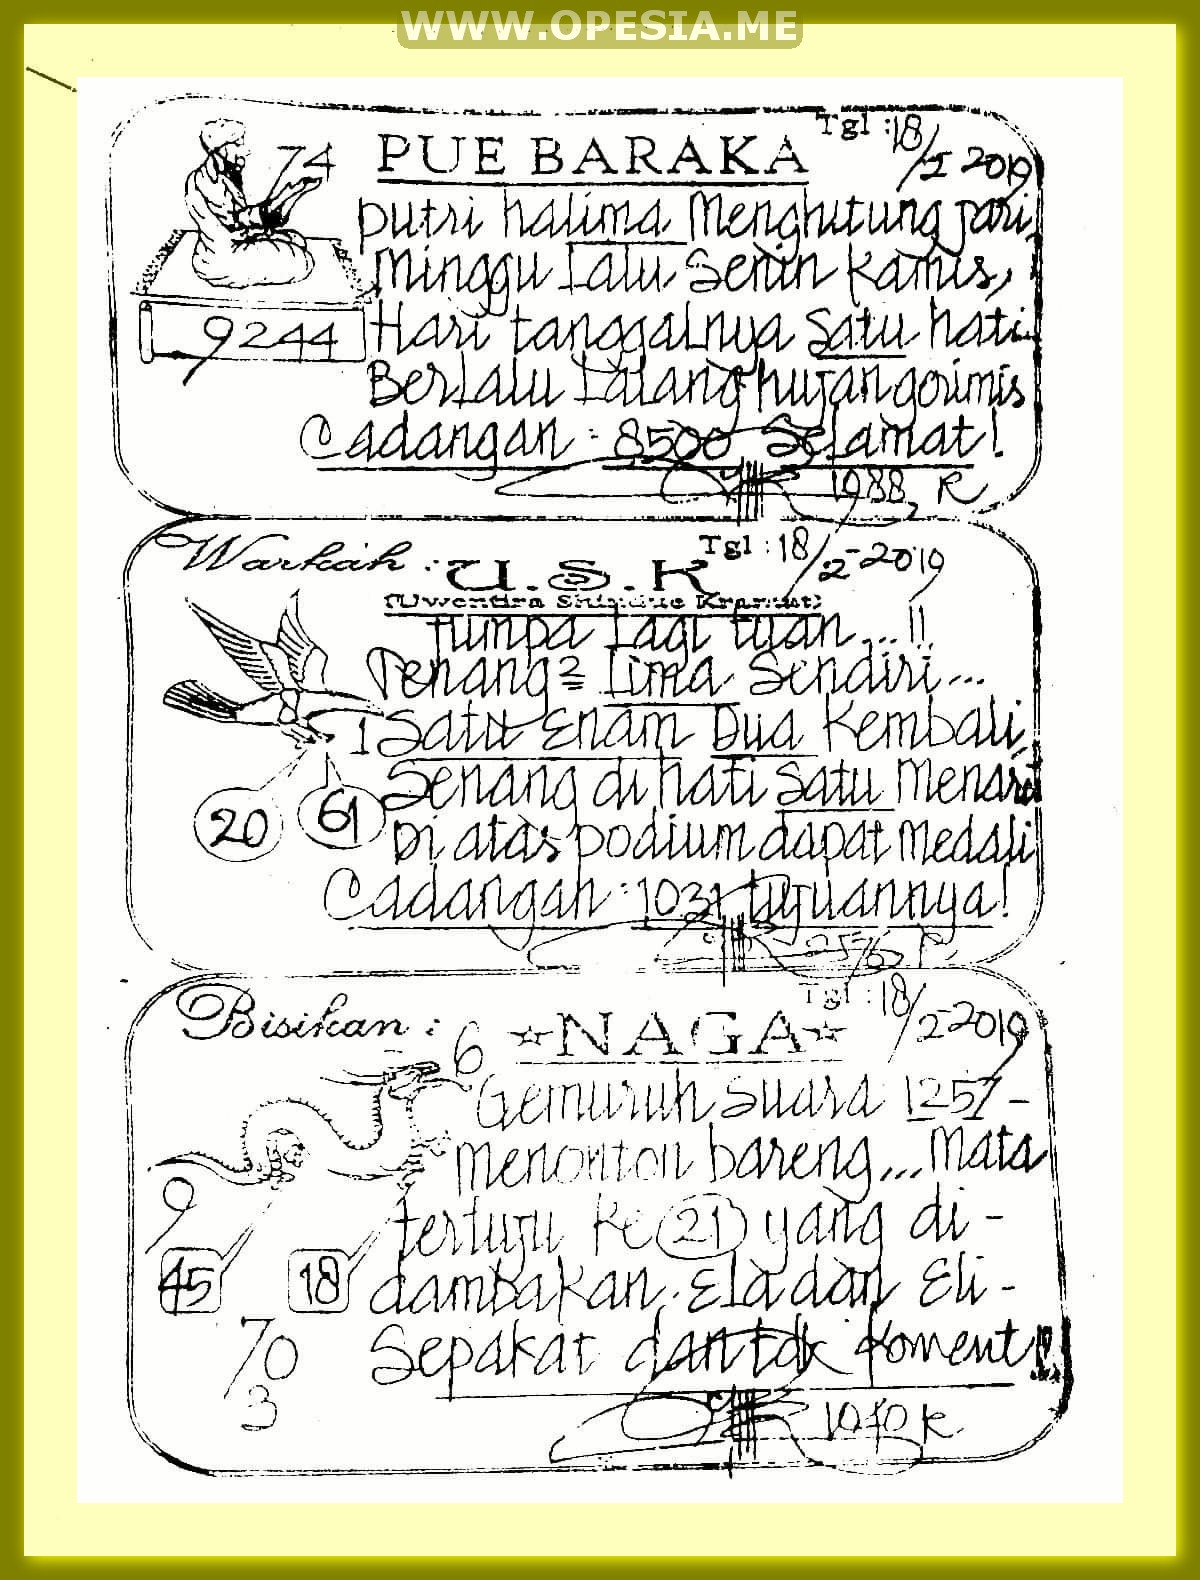 WWW.OPESIA.ME
Tgl : 18/I 2019
74
PUE BARAKA
putri halima Menghitung jari,
Minggu Lalu Senin Kamis,
9244
Hari tanggalnya Satu hati
Berlalu Lalang hujan gorimis
Cadangan : 8500 Selamat!
1988 R
Tgl : 18/2-2019
Warkah : U.S.K
(Uwentira Shindue Kramat)
Jumpa Lagi tuan...!!
Tenang2 Lima Sendiri...
1 Satu Enam Dua Kembali,
Senang di hati Satu Menari
20 61
Di atas podium dapat Medali
Cadangan : 1031 tujuannya!
Tgl : 18/2-2019
Bisikan : NAGA
6
Gemuruh Suara 1257-
Menonton bareng... Mata
9
tertuju ke 21 yang di-
45 18
dambakan. Ela dan Eli-
70
Sepakat dan tdk Koment!!
3
1070 R